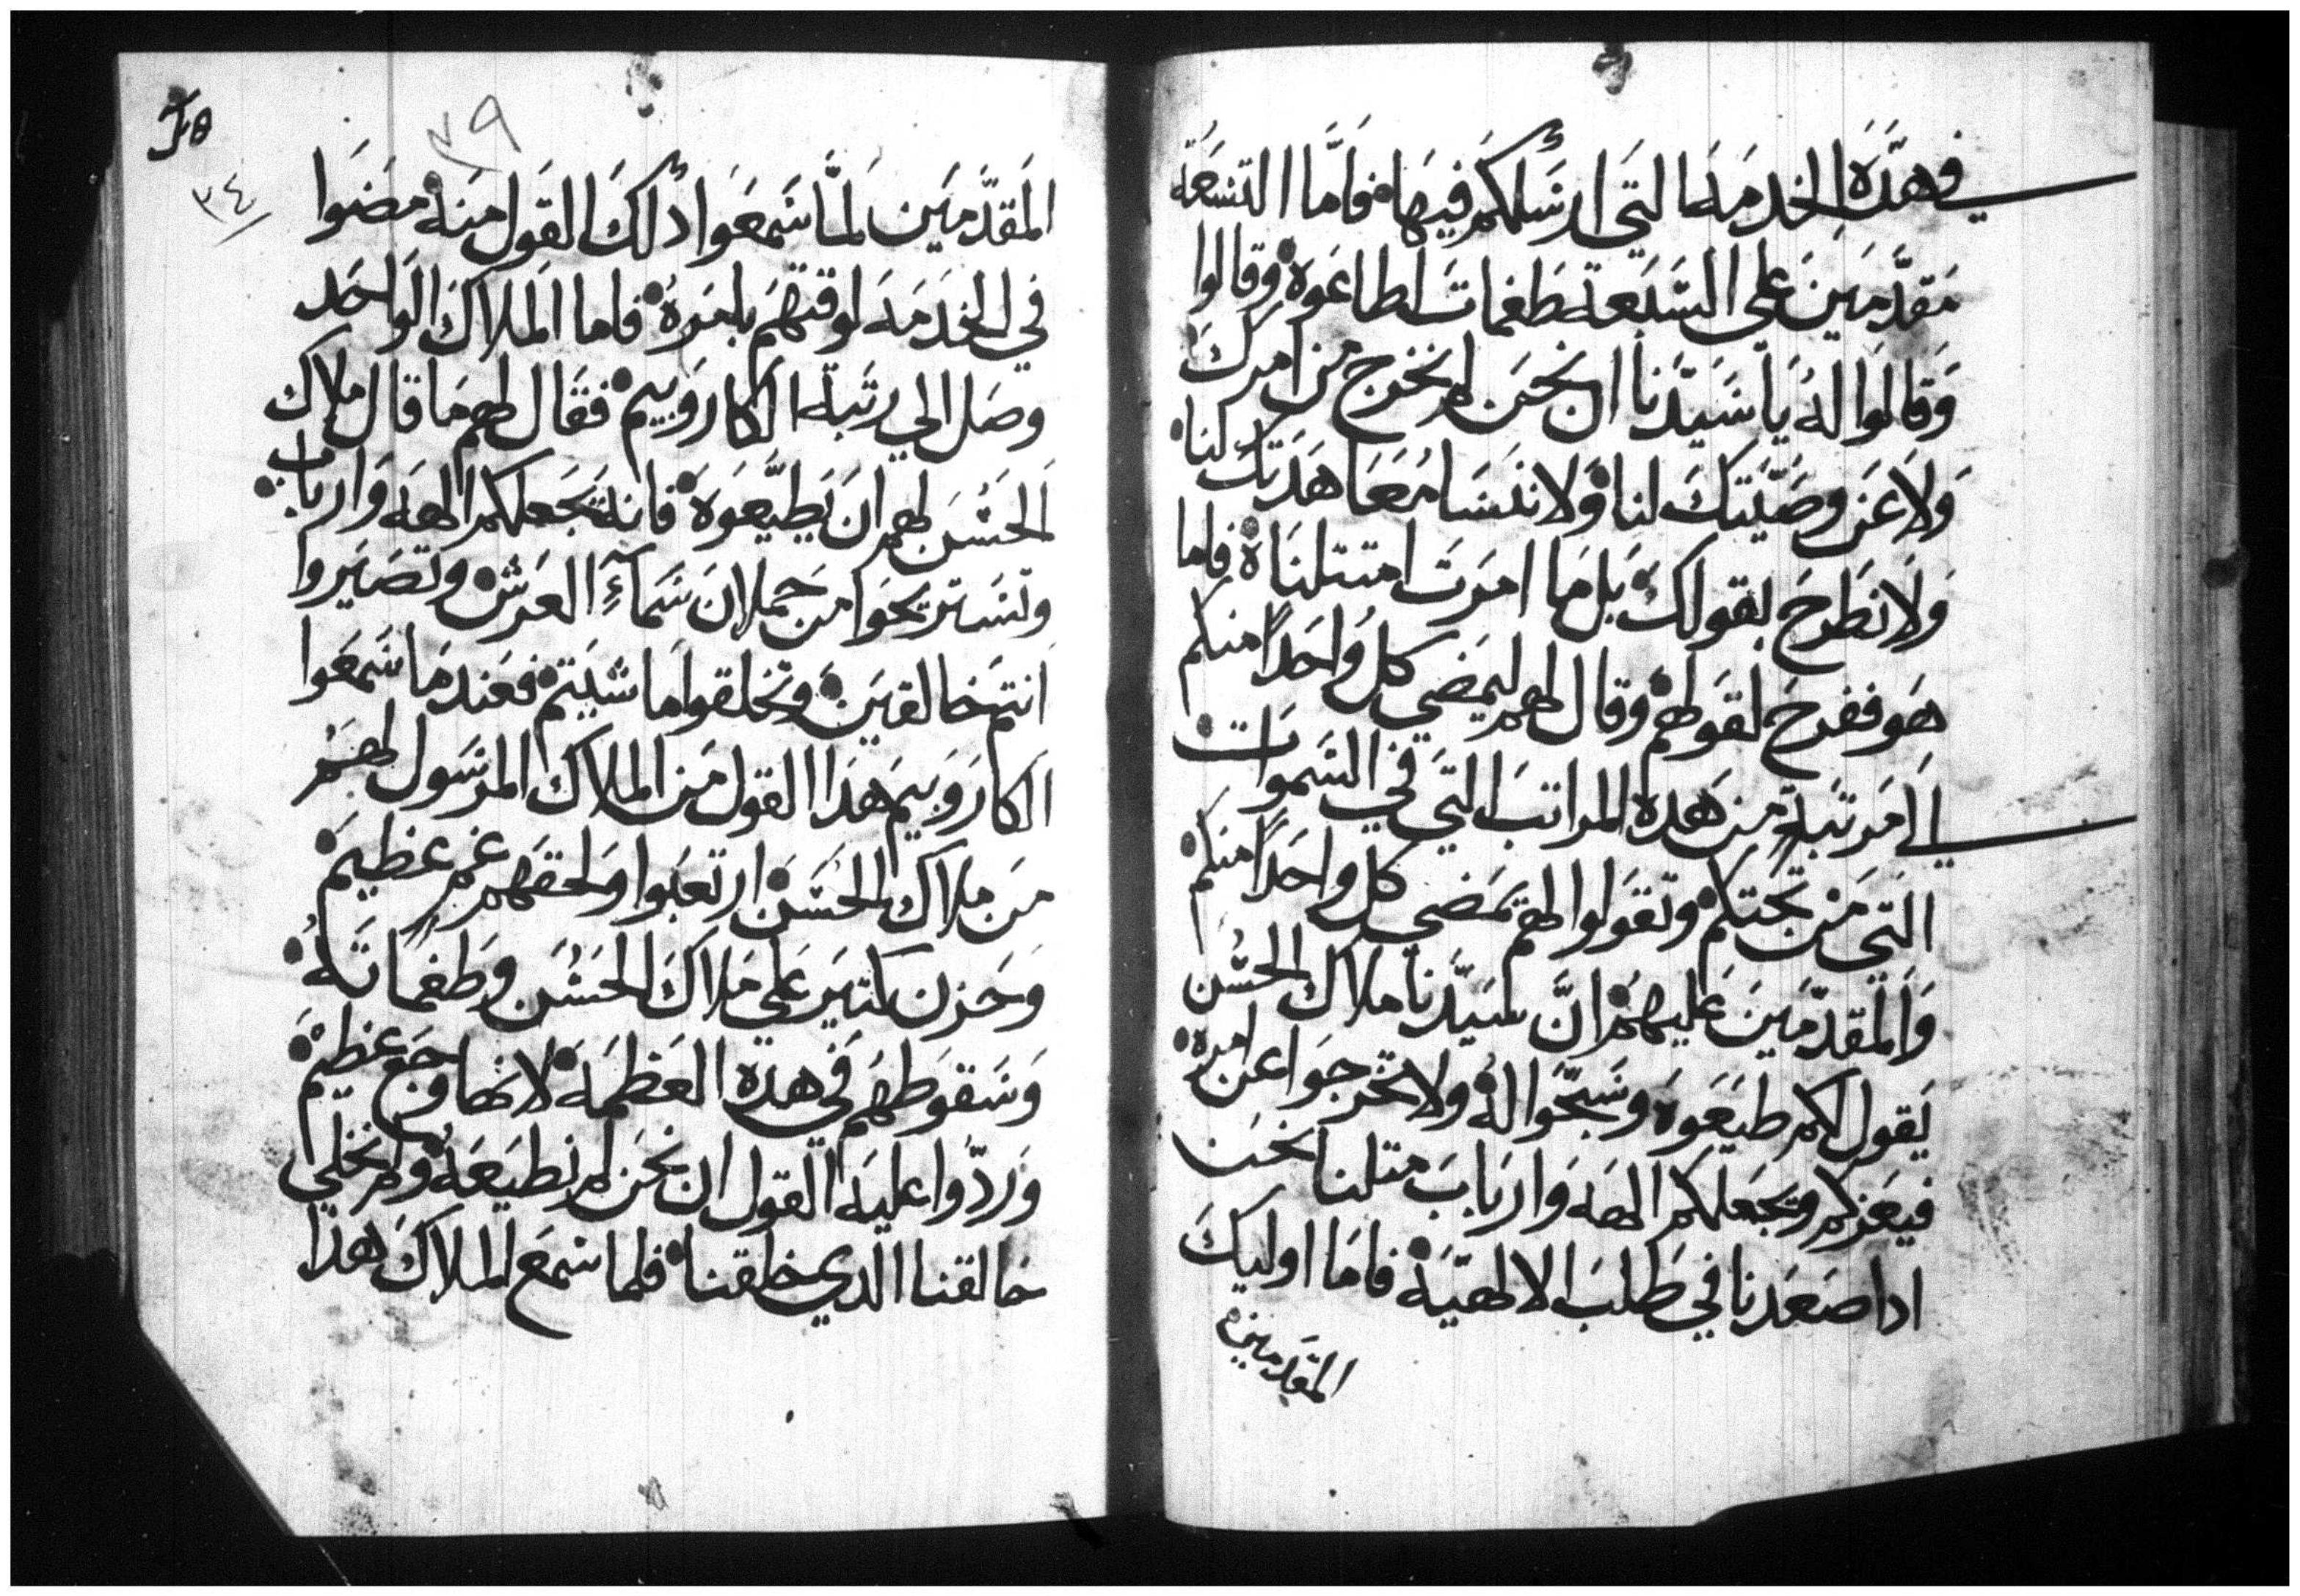 في هذه الخدمه التي ارسلكم فيها فاما التسعة
مقدمين علي السبعة طغمات اطاعوه وقالوا
وقالوا له يا سيدنا ان نحن لم نخرج من امرك
ولا عن وصيتك لنا ولا ننسا معاهدتك لنا
ولا نطرح لقولك بل ما امرت امتتلناه فاما
هو ففرح لقولهم وقال لهم ليمضي كل واحدا منكم
الي مرتبة من هده المراتب التي في السموات
التي من تحتكم وتقولوا لهم يمضي كل واحدا منكم
والمقدمين عليهم ان سيدنا ملاك الحسن
يقول لكم طيعوه وسبحوا له ولا تخرجوا عن امره
فيعزكم ويجعلكم الهه وارباب متلنا نحن
ادا صعدنا في طلب الالهية فاما اوليك
المقدمين
٢٩
٣٤
المقدمين لما سمعوا دلك القول منه مضوا
في الخدمه لوقتهم بامره فاما الملاك الواحد
وصل الي رتبة الكاروبيم فقال لهم ما قال ملاك
الحسن لهم ان يطيعوه فانه يجعلكم الهه وارباب
وتستريحوا من حملان سماء العرش وتصيروا
انتم خالقين وتخلقوا ما شيتم فعند ما سمعوا
الكاروبيم هدا القول من الملاك المرسول لهم
من ملاك الحسن ارتعبوا ولحقهم غم عظيم
وحزن كتير علي ملاك الحسن وطغماته
وسقوطهم في هده العظمه لانها وجع عظيم
وردوا عليه القول ان نحن لم نطيعه ولم نخلي
خالقنا الدي خلقنا فلما سمع الملاك هدا